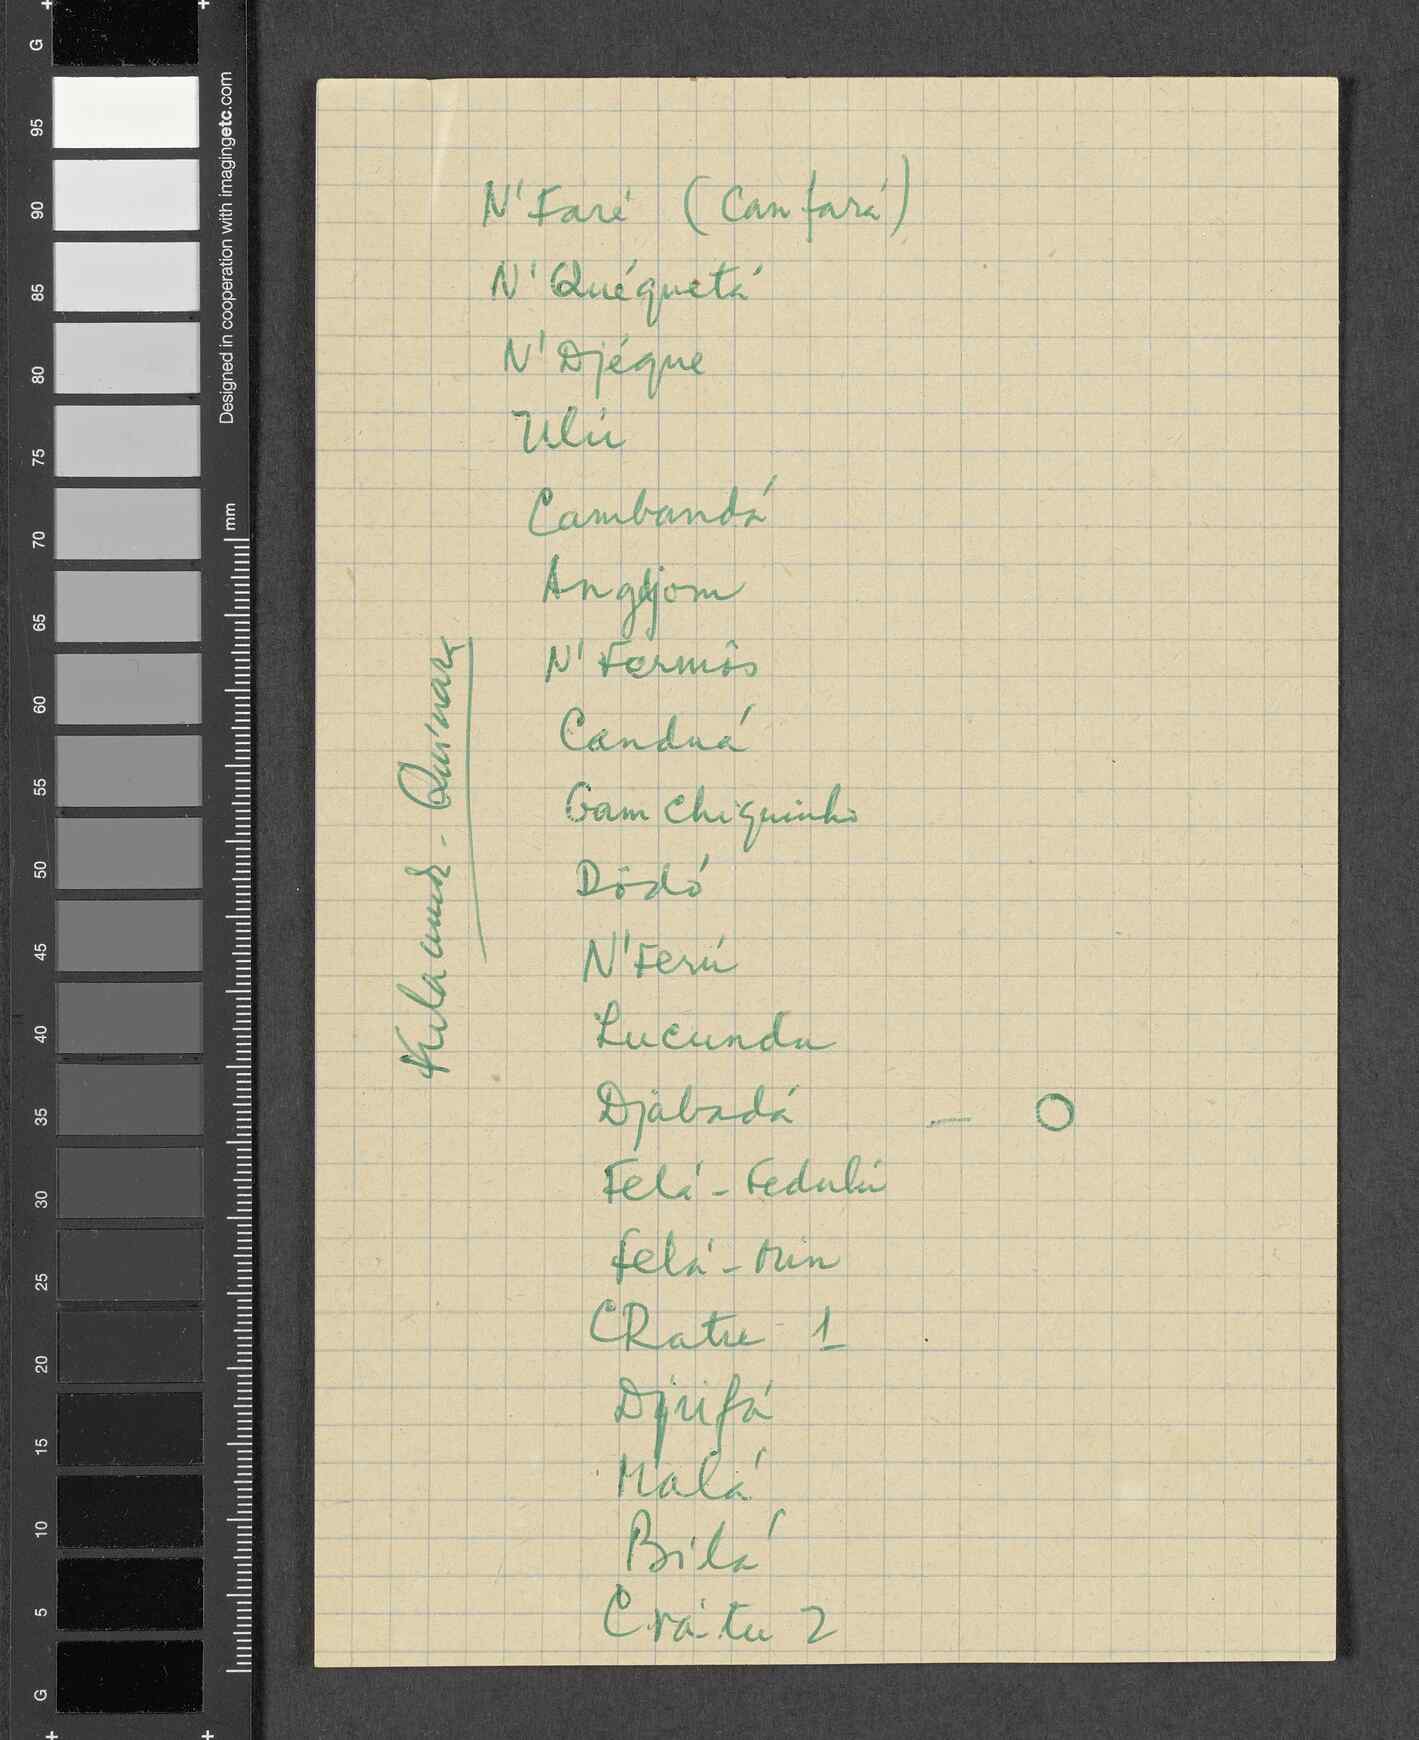 N'Faré (Canfará)
N'Quéquetá
N'Djéque
Ulú
Cambandá
Angdjom
N'Fermôs
Canduá
Gam Chiquinho
Dôdó
N'Ferú
Lucunda
Djabadá — O
Felá - Fedulú
Felá - Min
CRatu 1
Djufá
Malá
Bilá
Crátu 2
Quinara
Designed in cooperation with imagingetc.com
mm
G
95
90
85
80
75
70
65
60
55
50
45
40
35
30
25
20
15
10
5
G